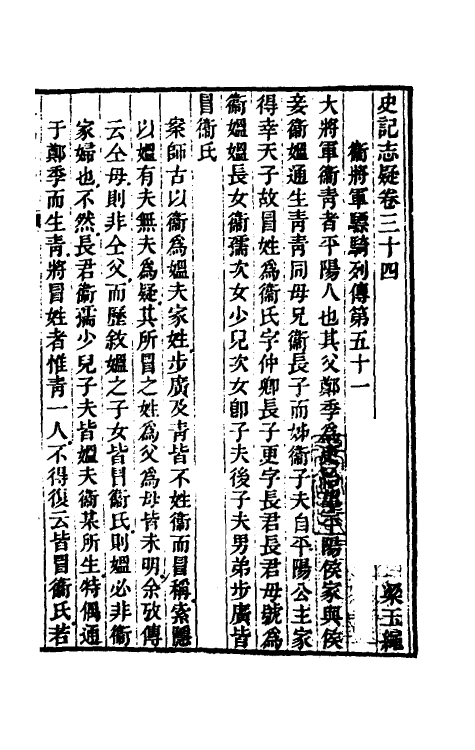 史記志疑卷三十四
梁玉繩
衞將軍驃騎列傳第五十一
大將軍衞青者平陽人也其父鄭季為吏給事平陽侯家與侯
妾衞媼通生青青同母兄衞長子而姊衞子夫自平陽公主家
得幸天子故冒姓為衞氏字仲卿長子更字長君長君母號為
衞媼媼長女衞孺次女少兒次女卽子夫後子夫男弟步廣皆
冒衞氏
案師古以衞為媼夫家姓步廣及青皆不姓衞而冒稱索隱
以媼有夫無夫為疑其所冒之姓為父為母皆未明余攷傳
云仝母則非仝父而歷敘媼之子女皆冒衞氏則媼必非衞
家婦也不然長君衞孺少兒子夫皆媼夫衞某所生特偶通
于鄭季而生青將冒姓者惟青一人不得復云皆冒衞氏若